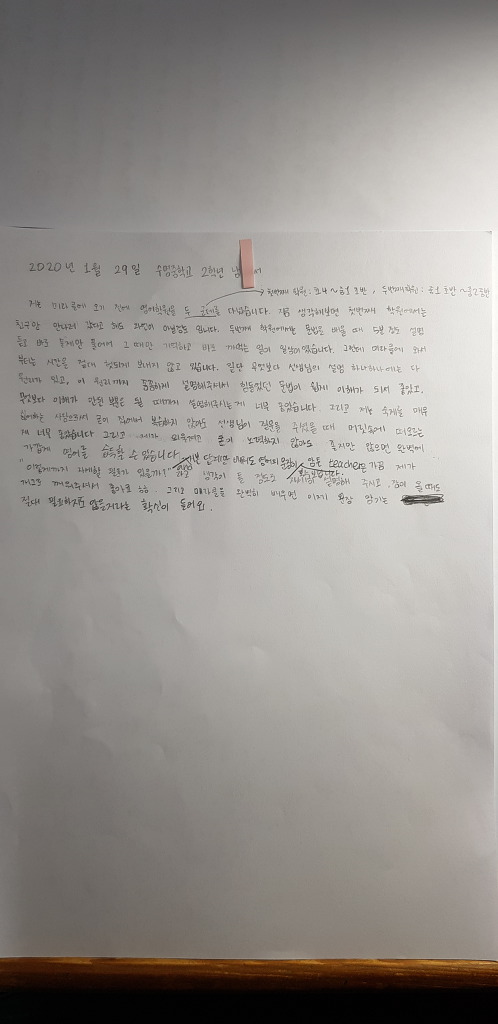 2020년 1월 29일 수명중학교 2학년 남
첫번째 학원 : 초4 ~ 중1 초반, 두번째 학원 : 중1 초반 ~ 중2 중반
저는 미라클에 오기 전에 영어학원을 두 군데를 다녔습니다. 지금 생각해보면 첫번째 학원에서는
친구만 만나러 갔다고 해도 과언이 아닐정도 입니다. 두번째 학원에서는 문법을 배울 때 5분 정도 설명
듣고 바로 문제만 풀어서 그 때만 기억하고 바로 까먹는 일이 일쑤였습니다. 그런데 미라클에 와서
부터는 시간을 절대 헛되게 보내지 않고 있습니다. 일단 무엇보다 선생님의 설명 하나하나에는 다
원리가 있고, 이 원리까지 꼼꼼하게 설명해주셔서 힘들었던 문법이 쉽게 이해가 되서 좋았고,
무엇보다 이해가 안된 부분은 될 때까지 설명해주시는게 너무 좋았습니다. 그리고 저는 숙제를 매우
싫어하는 사람으로서 굳이 집에서 복습하지 않아도 선생님이 질문을 주셨을 때 머릿속에 떠오르는
게 너무 좋았습니다 그리고 제가 외우려고 노력하지 않아도 졸지만 않으면 완벽에
가깝게 영어를 습득할 수 있습니다.
"이렇게까지 자세할 필요가 있을까?" 라는 생각이 들 정도로 자세히 설명해 주시고, 잠이 올 때도
깨워주셔서 좋아요. 그리고 미라클을 완벽히 배우면 이제 문장 암기는
절대 필요하지도 않을거라는 확신이 들어요.